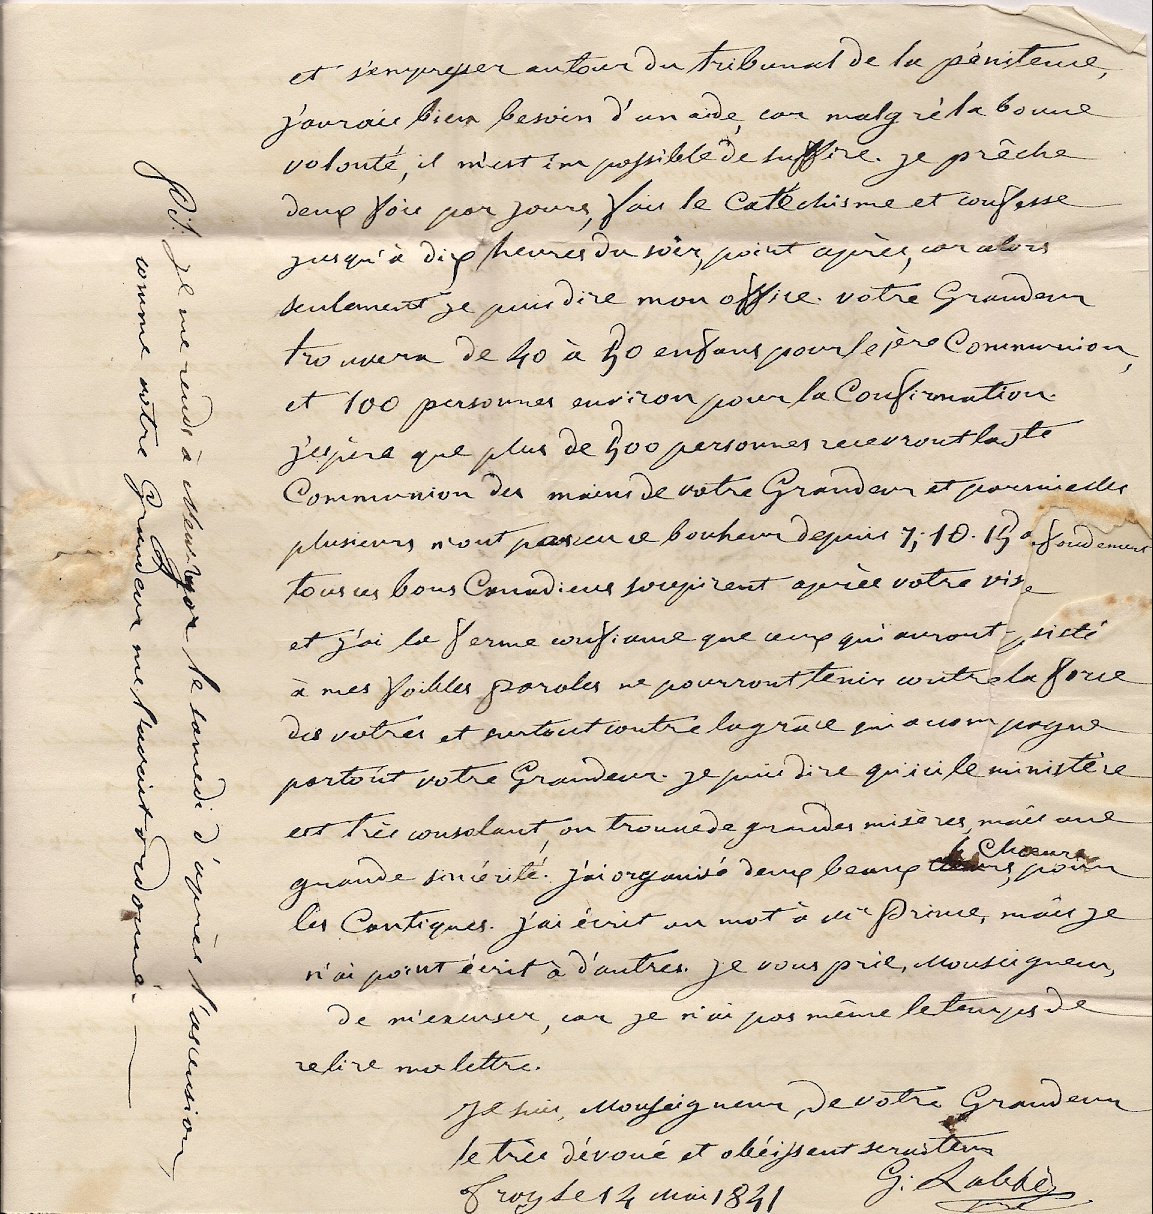 et s'empresser autour du tribunal de la pénitence,
j'aurais bien besoin d'un aide, car malgré la bonne
volonté, il m'est impossible de suffire. je prêche
deux fois par jours, fais le Catéchisme et confesse
jusqu'à dix heures du soir, point après, car alors
seulement je puis dire mon office. votre Grandeur
trouvera de 40 à 50 enfans pour le 1ère Communion,
et 100 personnes environ pour la Confirmation.
j'espère que plus de 500 personnes recevront la ste
Communion des mains de votre Grandeur et parmi elles
plusieurs n'ont pas eu ce bonheur depuis 7, 10. 15
tous ces bons Canadiens soupirent après votre vis
et j'ai la ferme confiance que ceux qui auront sisté
à mes foibles paroles ne pourront tenir contre la force
des votres et surtout contre la grâce qui accompagne
partout votre Grandeur. je puis dire qu'ici le ministère
est très consolant, on trouve de grandes misères, mais une
grande sincérité. j'ai organisé deux beaux Choeurs, pour
les Cantiques. j'ai écrit un mot à Mr Prince, mais je
n'ai point écrit à d'autres. je vous prie, Monseigneur,
de m'excuser, car je n'ai pas même le temps de
relire ma lettre.
Je suis, Monseigneur, de votre Grandeur
le très dévoué et obéissant serviteur
G. Labbé
Troy le 14 Mai 1841
P.S. je me rends à New-York le samedi d'après l'ascension,
comme votre Grandeur me l'avait ordonné. —